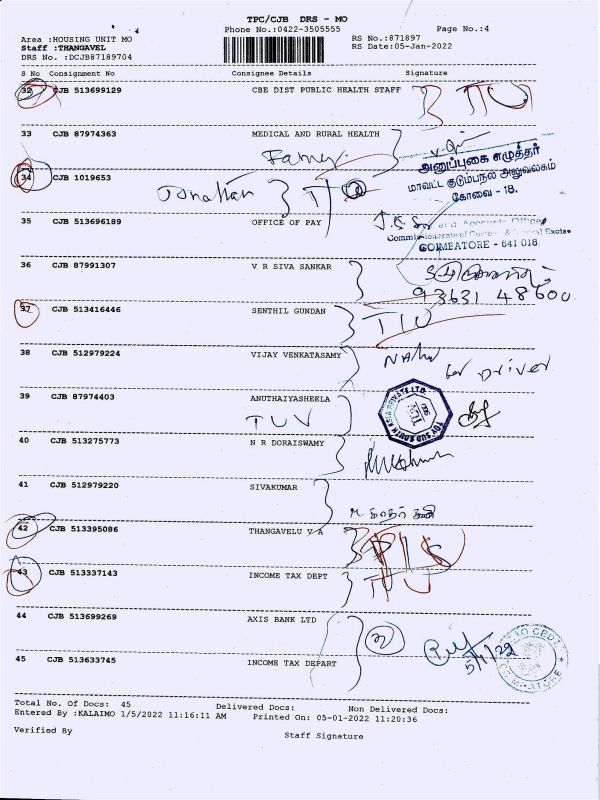 TPC/CJB DRS - MO
Phone No.:0422-3505555
Page No.:4
Area :HOUSING UNIT MO
RS No.:871897
Staff :THANGAVEL
RS Date:05-Jan-2022
DRS No. :DCJB87189704
S No Consignment No Consignee Details Signature
32 CJB 513699129 CBE DIST PUBLIC HEALTH STAFF
33 CJB 87974363 MEDICAL AND RURAL HEALTH
அனுப்புகை எழுத்தர்
மாவட்ட குடும்பநல அலுவலகம்
கோவை - 18.
34 CJB 1019653
35 CJB 513696189 OFFICE OF PAY
Accounts Officer
COIMBATORE - 641 018
36 CJB 87991307 V R SIVA SANKAR
93631 48600
37 CJB 513416446 SENTHIL GUNDAN
38 CJB 512979224 VIJAY VENKATASAMY
Driver
39 CJB 87974403 ANUTHAIYASHEELA
TUV
TUV SUD SOUTH ASIA PRIVATE LTD
40 CJB 513275773 N R DORAISWAMY
41 CJB 512979220 SIVAKUMAR
42 CJB 513395086 THANGAVELU V A
43 CJB 513337143 INCOME TAX DEPT
44 CJB 513699269 AXIS BANK LTD
5/1/22
45 CJB 513633745 INCOME TAX DEPART
Total No. Of Docs: 45 Delivered Docs: Non Delivered Docs:
Entered By :KALAIMO 1/5/2022 11:16:11 AM Printed On: 05-01-2022 11:20:36
Verified By
Staff Signature